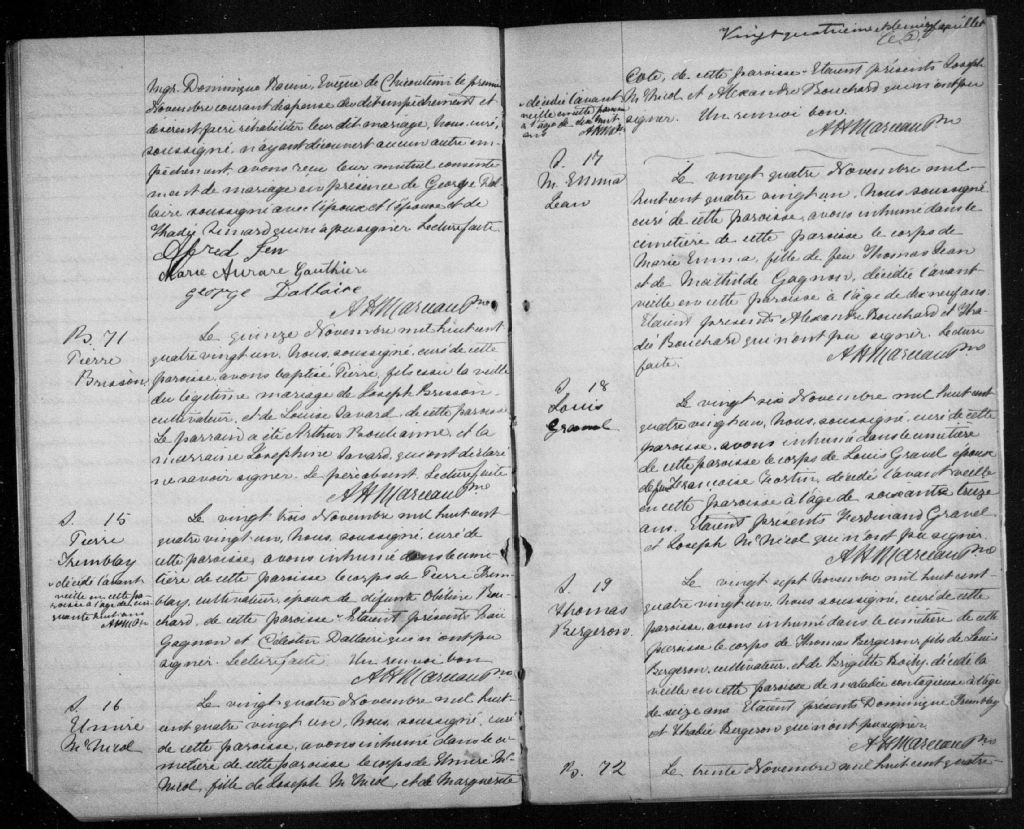 Mgr. Dominique Racine, Evêque de Chicoutimi le premier
Novembre courant dispense du dit empêchement et
désirent faire réhabiliter leur dit mariage, Nous, curé,
soussigné, n'ayant découvert aucun autre em-
pêchement, avons reçu leur mutuel consente
ment de mariage en présence de George Dal
laire soussigné avec l'époux et l'épouse et de
Thady Simard qui n'a pu signer. Lecture faite
Alfred
Marie Aurore Gauthier
george Dallaire
A H Marceau Ptre
B. 71
Pierre
Brisson
Le quinze Novembre mil huit cent
quatre vingt un, Nous, soussigné, curé de cette
paroisse, avons baptisé Pierre, fils issu la veille
du légitime mariage de Joseph Brisson,
cultivateur, et de Louise Savard, de cette paroisse
Le parrain a été Arthur et la
marraine Josephine Savard, qui ont déclaré
ne savoir signer. Le père absent. Lecture faite
A H Marceau Ptre
S. 15
Pierre
Tremblay
décédé l'avant
veille en cette pa
roisse à l'age de cin
quante huit ans
A H M Ptre
Le vingt trois Novembre mil huit cent
quatre vingt un, Nous, soussigné, curé de
cette paroisse, avons inhumé dans le cime
tière de cette paroisse le corps de Pierre Trem
blay, cultivateur, époux de défunte Obéline Bou
chard, de cette paroisse - Etaient présents
Gagnon et Célestin Dallaire qui n'ont pu
signer. Lecture faite Un renvoi bon
A H Marceau Ptre
S. 16
Elmire
McNicol
Le vingt quatre Novembre mil huit
cent quatre vingt un, Nous, soussigné, curé
de cette paroisse, avons inhumé dans le ci
metière de cette paroisse le corps de Elmire Mc
Nicol, fille de Joseph McNicol, et de Marguerite
Vingt quatrième et dernier feuillet
Coté, de cette paroisse - Etaient présents Joseph
McNicol et Alexandre Bouchard qui n'ont pu
signer. Un renvoi bon.
A H Marceau Ptre
décédée l'avant
veille en cette paroisse
à l'age de dix huit
ans A H M Ptre
S. 17
M. Emma
Jean
Le vingt quatre Novembre mil
huit cent quatre vingt un, Nous soussigné
curé de cette paroisse, avons inhumé dans le
cimetière de cette paroisse le corps de
Marie Emma, fille de feu Thomas Jean
et de Mathilde Gagnon, décédée l'avant
veille en cette paroisse à l'âge de dix neuf ans.
Etaient présents Alexandre Bouchard et Tha
dée Bouchard qui n'ont pu signer. Lecture
faite.
A H Marceau Ptre
S. 18
Louis
Gravel
Le vingt six Novembre mil huit cent
quatre vingt un, Nous, soussigné, curé de cette
paroisse, avons inhumé dans le cimetière
de cette paroisse le corps de Louis Gravel époux
de feu Françoise Fortin, décédé l'avant veille
en cette paroisse à l'age de soixante treize
ans. Etaient présents Ferdinand Gravel
et Joseph McNicol qui n'ont pu signer.
A H Marceau Ptre
S. 19
Thomas
Bergeron
Le vingt sept Novembre mil huit cent
quatre vingt un, Nous soussigné, curé de cette
paroisse, avons inhumé dans le cimetière de cette
paroisse le corps de Thomas Bergeron, fils de Louis
Bergeron, cultivateur, et de Brigitte Boily, décédé la
veille en cette paroisse de maladie contagieuse à l'âge
de seize ans Etaient présents Dominique Tremblay
et Thadée Bergeron qui n'ont pu signer
A H Marceau Ptre
B. 72
Le trente Novembre mil huit cent quatre-